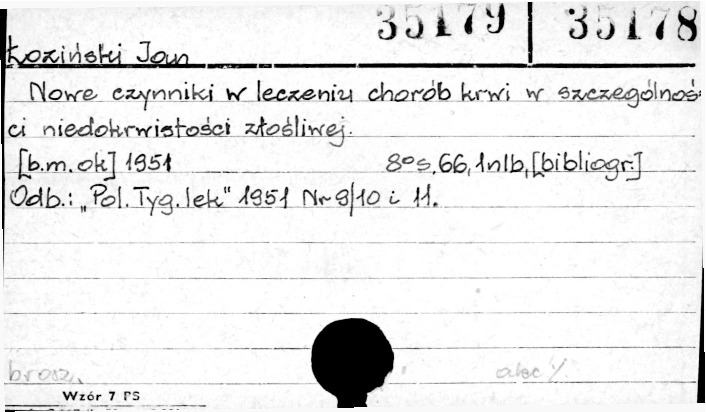 35179 35178
Łoziński Jan
Nowe czynniki w leczeniu chorób krwi w szczególnoś-
ci niedokrwistości złośliwej.
[b.m.ok] 1951 8° s.66,1nlb,[bibliogr.]
Odb.: „Pol.Tyg.lek" 1951 Nr 9/10 i 11.
brosz.
Wzór 7 PS